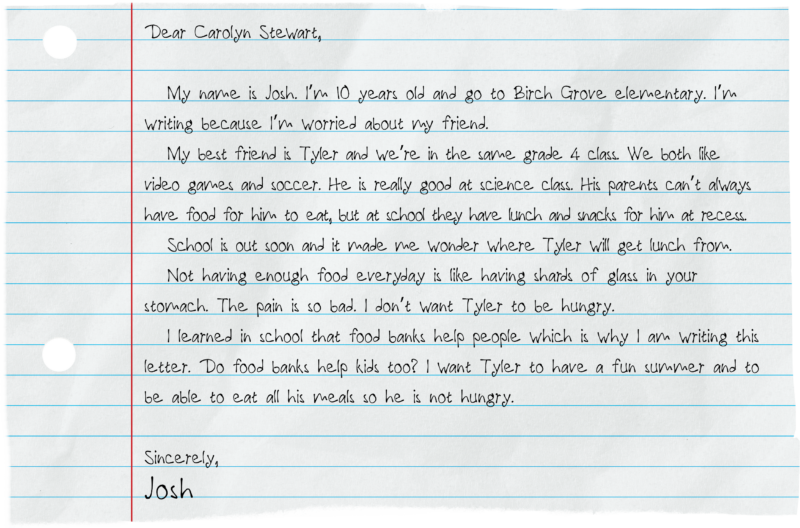 Dear Carolyn Stewart,
My name is Josh. I'm 10 years old and go to Birch Grove elementary. I'm
writing because I'm worried about my friend.
My best friend is Tyler and we're in the same grade 4 class. We both like
video games and soccer. He is really good at science class. His parents can't always
have food for him to eat, but at school they have lunch and snacks for him at recess.
School is out soon and it made me wonder where Tyler will get lunch from.
Not having enough food everyday is like having shards of glass in your
stomach. The pain is so bad. I don't want Tyler to be hungry.
I learned in school that food banks help people which is why I am writing this
letter. Do food banks help kids too? I want Tyler to have a fun summer and to
be able to eat all his meals so he is not hungry.
Sincerely,
Josh